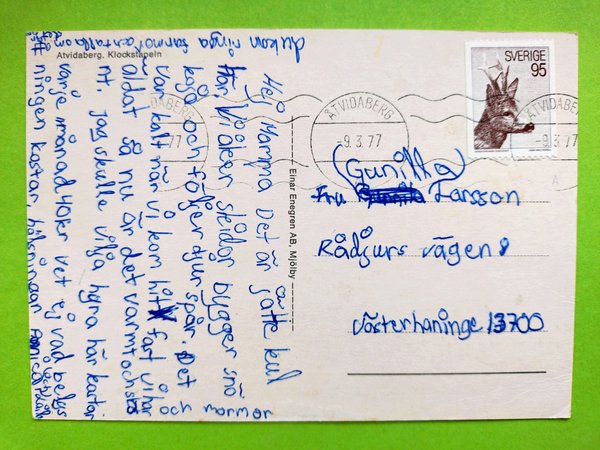 du kan ringa farmor och tala om
Åtvidaberg. Klockstapeln
Hej Mamma Det är jätte kul
här Vi åker skidor bygger snö
koja och följer djur spår. Det
var kallt när vi kom hit fast vi har
eldat så nu är det varmt och skönt
nt jag skulle vilja hyra här kartan
varje månad 40kr vet ej vad belys
ningen kostar, hälsningar Annica
och mormor
Einar Enegren AB, Mjölby
SVERIGE
95
ÅTVIDABERG
-9.3.77
ÅTVIDABERG
-9.3.77
A
(Gunilla)
Fru Larsson
Rådjurs vägen 9
Västerhaninge 13700